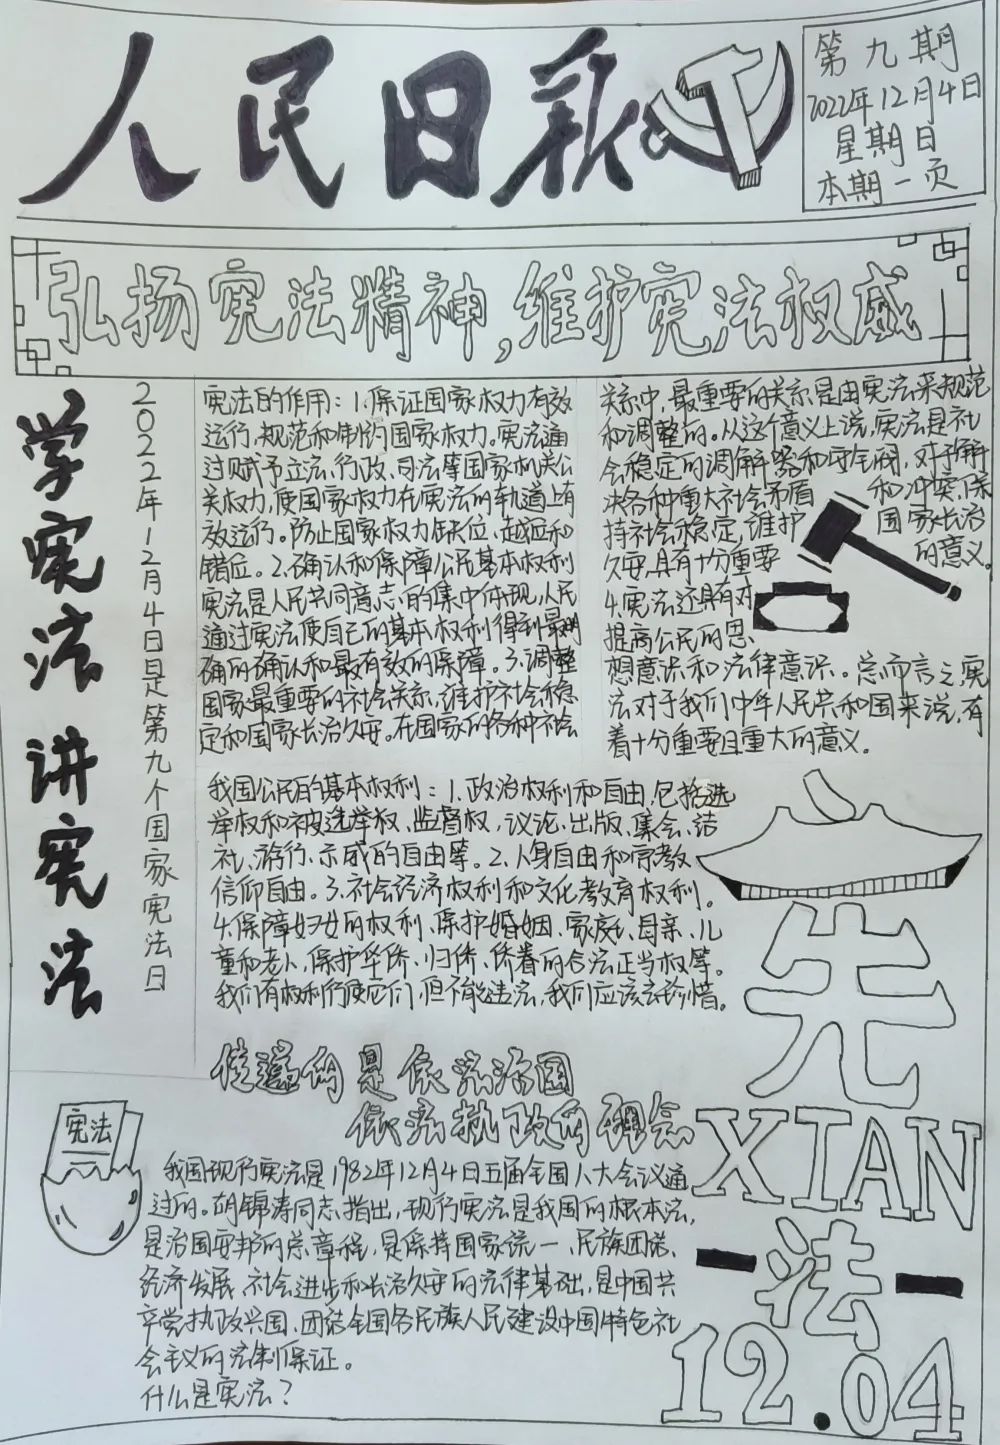 人民日报
第九期
2022年12月4日
星期日
本期一页
弘扬宪法精神,维护宪法权威
学宪法 讲宪法
2022年12月4日是第九个国家宪法日
宪法的作用：1.保证国家权力有效
运行,规范和制约国家权力。宪法通
过赋予立法、行政、司法等国家机关公
关权力,使国家权力在宪法的轨道上有
效运行。防止国家权力缺位、越位和
错位。2.确认和保障公民基本权利
宪法是人民共同意志的集中体现,人民
通过宪法使自己的基本权利得到最明
确的确认和最有效的保障。3.调整
国家最重要的社会关系,维护社会稳
定和国家长治久安。在国家的各种社会
关系中,最重要的关系是由宪法来规范
和调整的。从这个意义上说,宪法是社
会稳定的调解器和安全阀,对于解
决各种重大社会矛盾和冲突,保
持社会稳定,维护国家长治
久安,具有十分重要的意义。
4.宪法还具有对
提高公民的思
想意识和法律意识。总而言之,宪
法对于我们中华人民共和国来说,有
着十分重要且重大的意义.
我国公民的基本权利：1.政治权利和自由,包括选
举权和被选举权、监督权、议论、出版、集会、结
社、游行、示威的自由等。2.人身自由和宗教
信仰自由。3.社会经济权利和文化教育权利。
4.保障妇女的权利、保护婚姻、家庭、母亲、儿
童和老人,保护华侨、归侨、侨眷的合法正当权等。
我们有权利行使它们,但不能违法,我们应该去珍惜。
是依法治国
依法执政的
宪法
我国现行宪法是1982年12月4日五届全国人大会议通
过的。胡锦涛同志指出,现行宪法是我国的根本法,
是治国安邦的总章程,是保持国家统一、民族团结、
经济发展、社会进步和长治久安的法律基础,是中国共
产党执政兴国、团结全国各民族人民建设中国特色社
会主义的法制保证。
什么是宪法？
先
XIAN
法
12.04